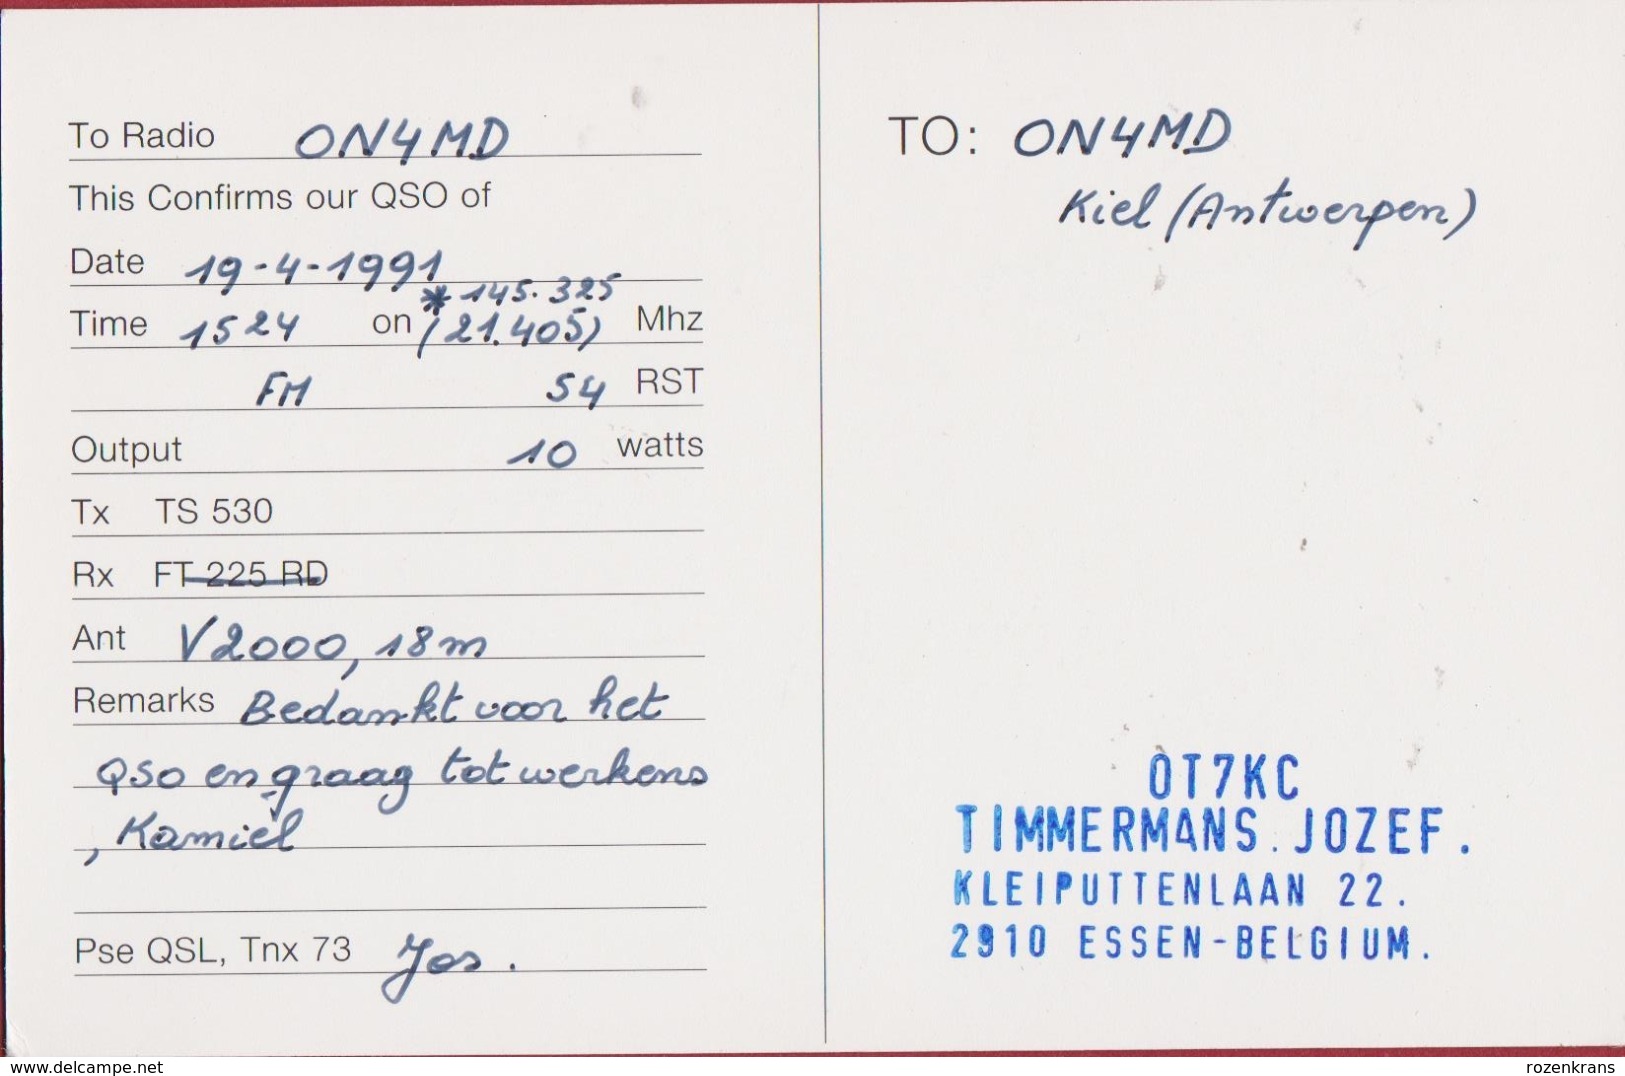 To Radio ON4MD
This Confirms our QSO of
Date 19-4-1991
* 145.325
Time 1524 on (21.405) Mhz
FM 54 RST
Output 10 watts
Tx TS 530
Rx FT 225 RD
Ant V2000, 18m
Remarks Bedankt voor het
QSO en graag tot werkens
, Kamiel
Pse QSL, Tnx 73 Jos.
TO: ON4MD
Kiel (Antwerpen)
OT7KC
TIMMERMANS. JOZEF.
KLEIPUTTENLAAN 22.
2910 ESSEN-BELGIUM.
www.delcampe.net
rozenkrans